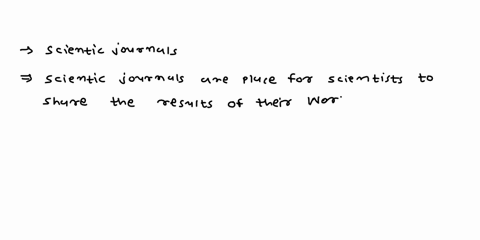 → scientic journals
⇒ scientic journals are place for scientists to
share the results of their wor